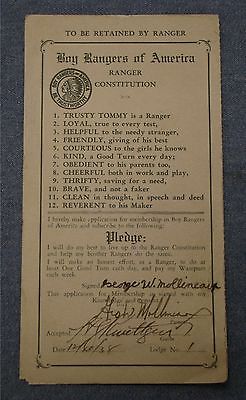 TO BE RETAINED BY RANGER
Boy Rangers of America
RANGER
CONSTITUTION
BOY RANGERS OF AMERICA
1. TRUSTY TOMMY is a Ranger
2. LOYAL, true to every test,
3. HELPFUL to the needy stranger,
4. FRIENDLY, giving of his best
5. COURTEOUS to the girls he knows
6. KIND, a Good Turn every day;
7. OBEDIENT to his parents too,
8. CHEERFUL both in work and play,
9. THRIFTY, saving for a need,
10. BRAVE, and not a faker
11. CLEAN in thought, in speech and deed
12. REVERENT to his Maker
I hereby make application for membership in Boy Rangers
of America and subscribe to the following:
Pledge:
I will do my best to live up to the Ranger Constitution
and help my brother Rangers do the same.
I will make an honest effort, as a Ranger, to do at
least One Good Turn each day, and pay my Wampum
each week.
Signed George W. Mollineaux
This application for Membership is signed with my
Knowledge and
Accepted
Guide
Date Lodge No. 1